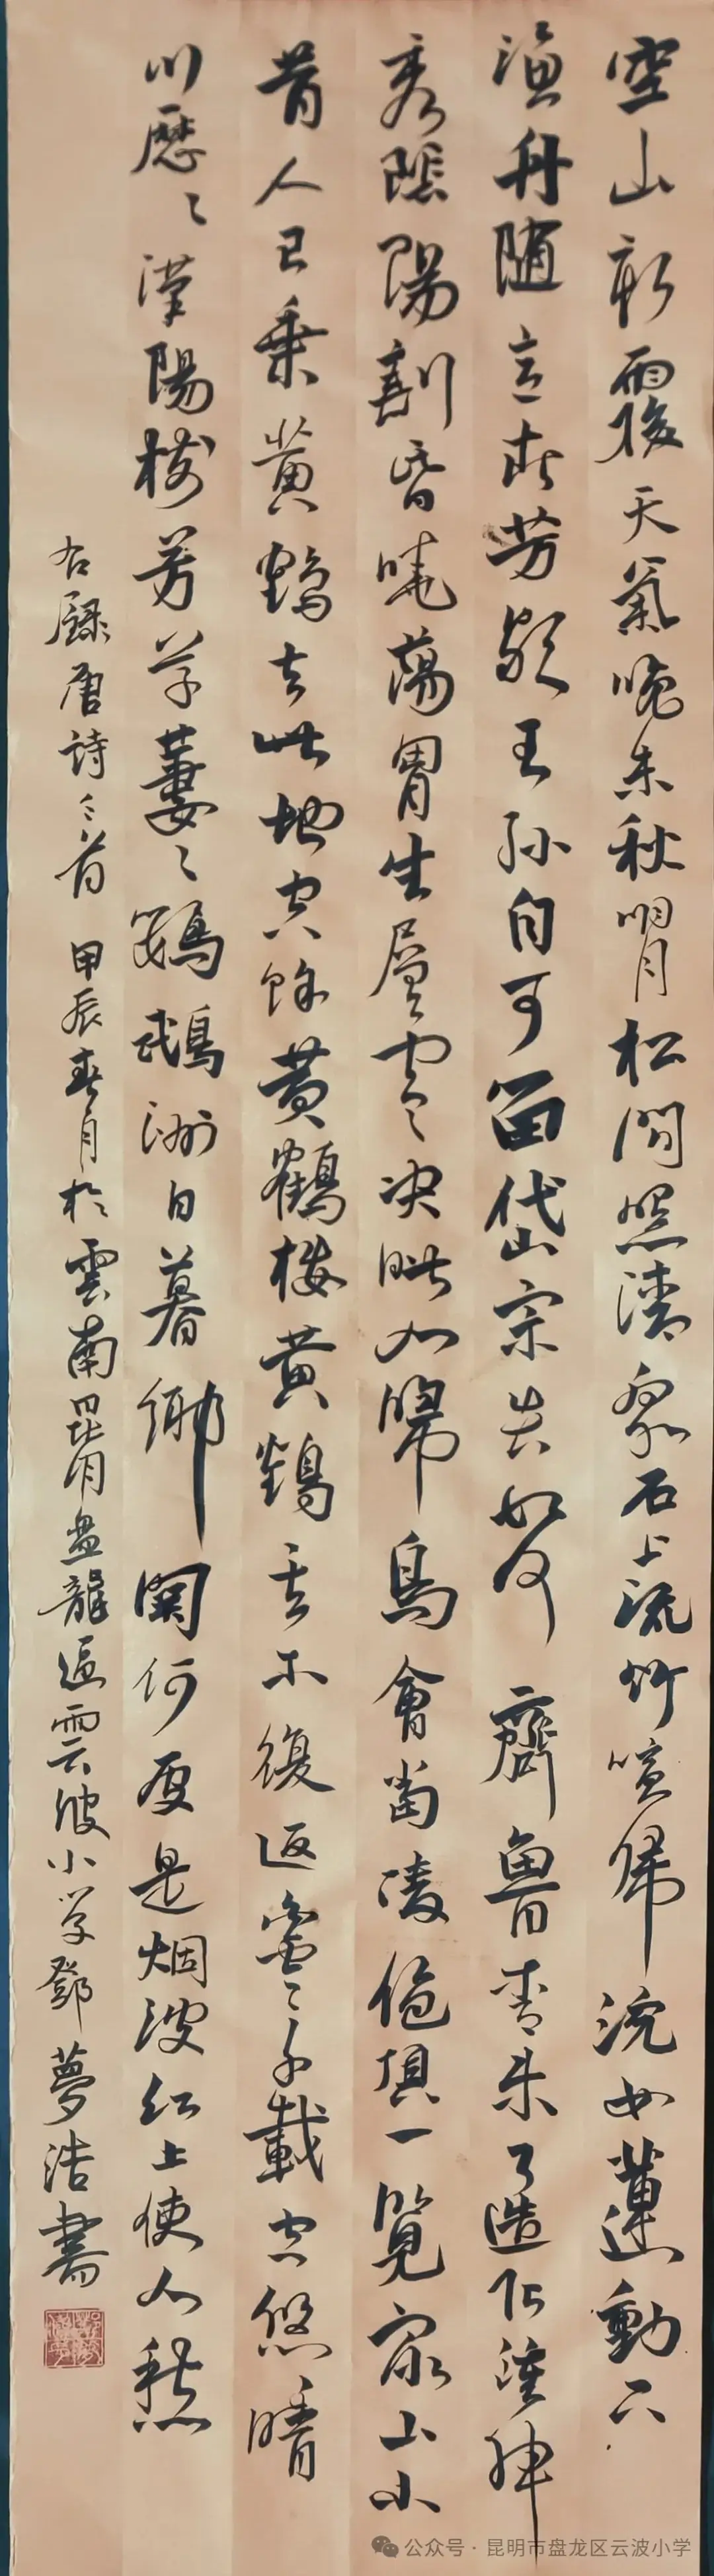 空山新雨後天氣晚來秋明月松間照清泉石上流竹喧歸浣女蓮動下
漁舟隨意春芳歇王孫自可留岱宗夫如何齊魯青未了造化鍾神
秀陰陽割昏曉蕩胷生層雲決眥入歸鳥會當凌絕頂一覽眾山小
昔人已乘黃鶴去此地空餘黃鶴樓黃鶴一去不復返白雲千載空悠悠晴
川歷々漢陽樹芳草萋々鸚鵡洲日暮鄉關何處是烟波江上使人愁
右錄唐詩三首 甲辰春月於雲南昆明盘龍區雲波小学鄧夢浩書
公众号·昆明市盘龙区云波小学